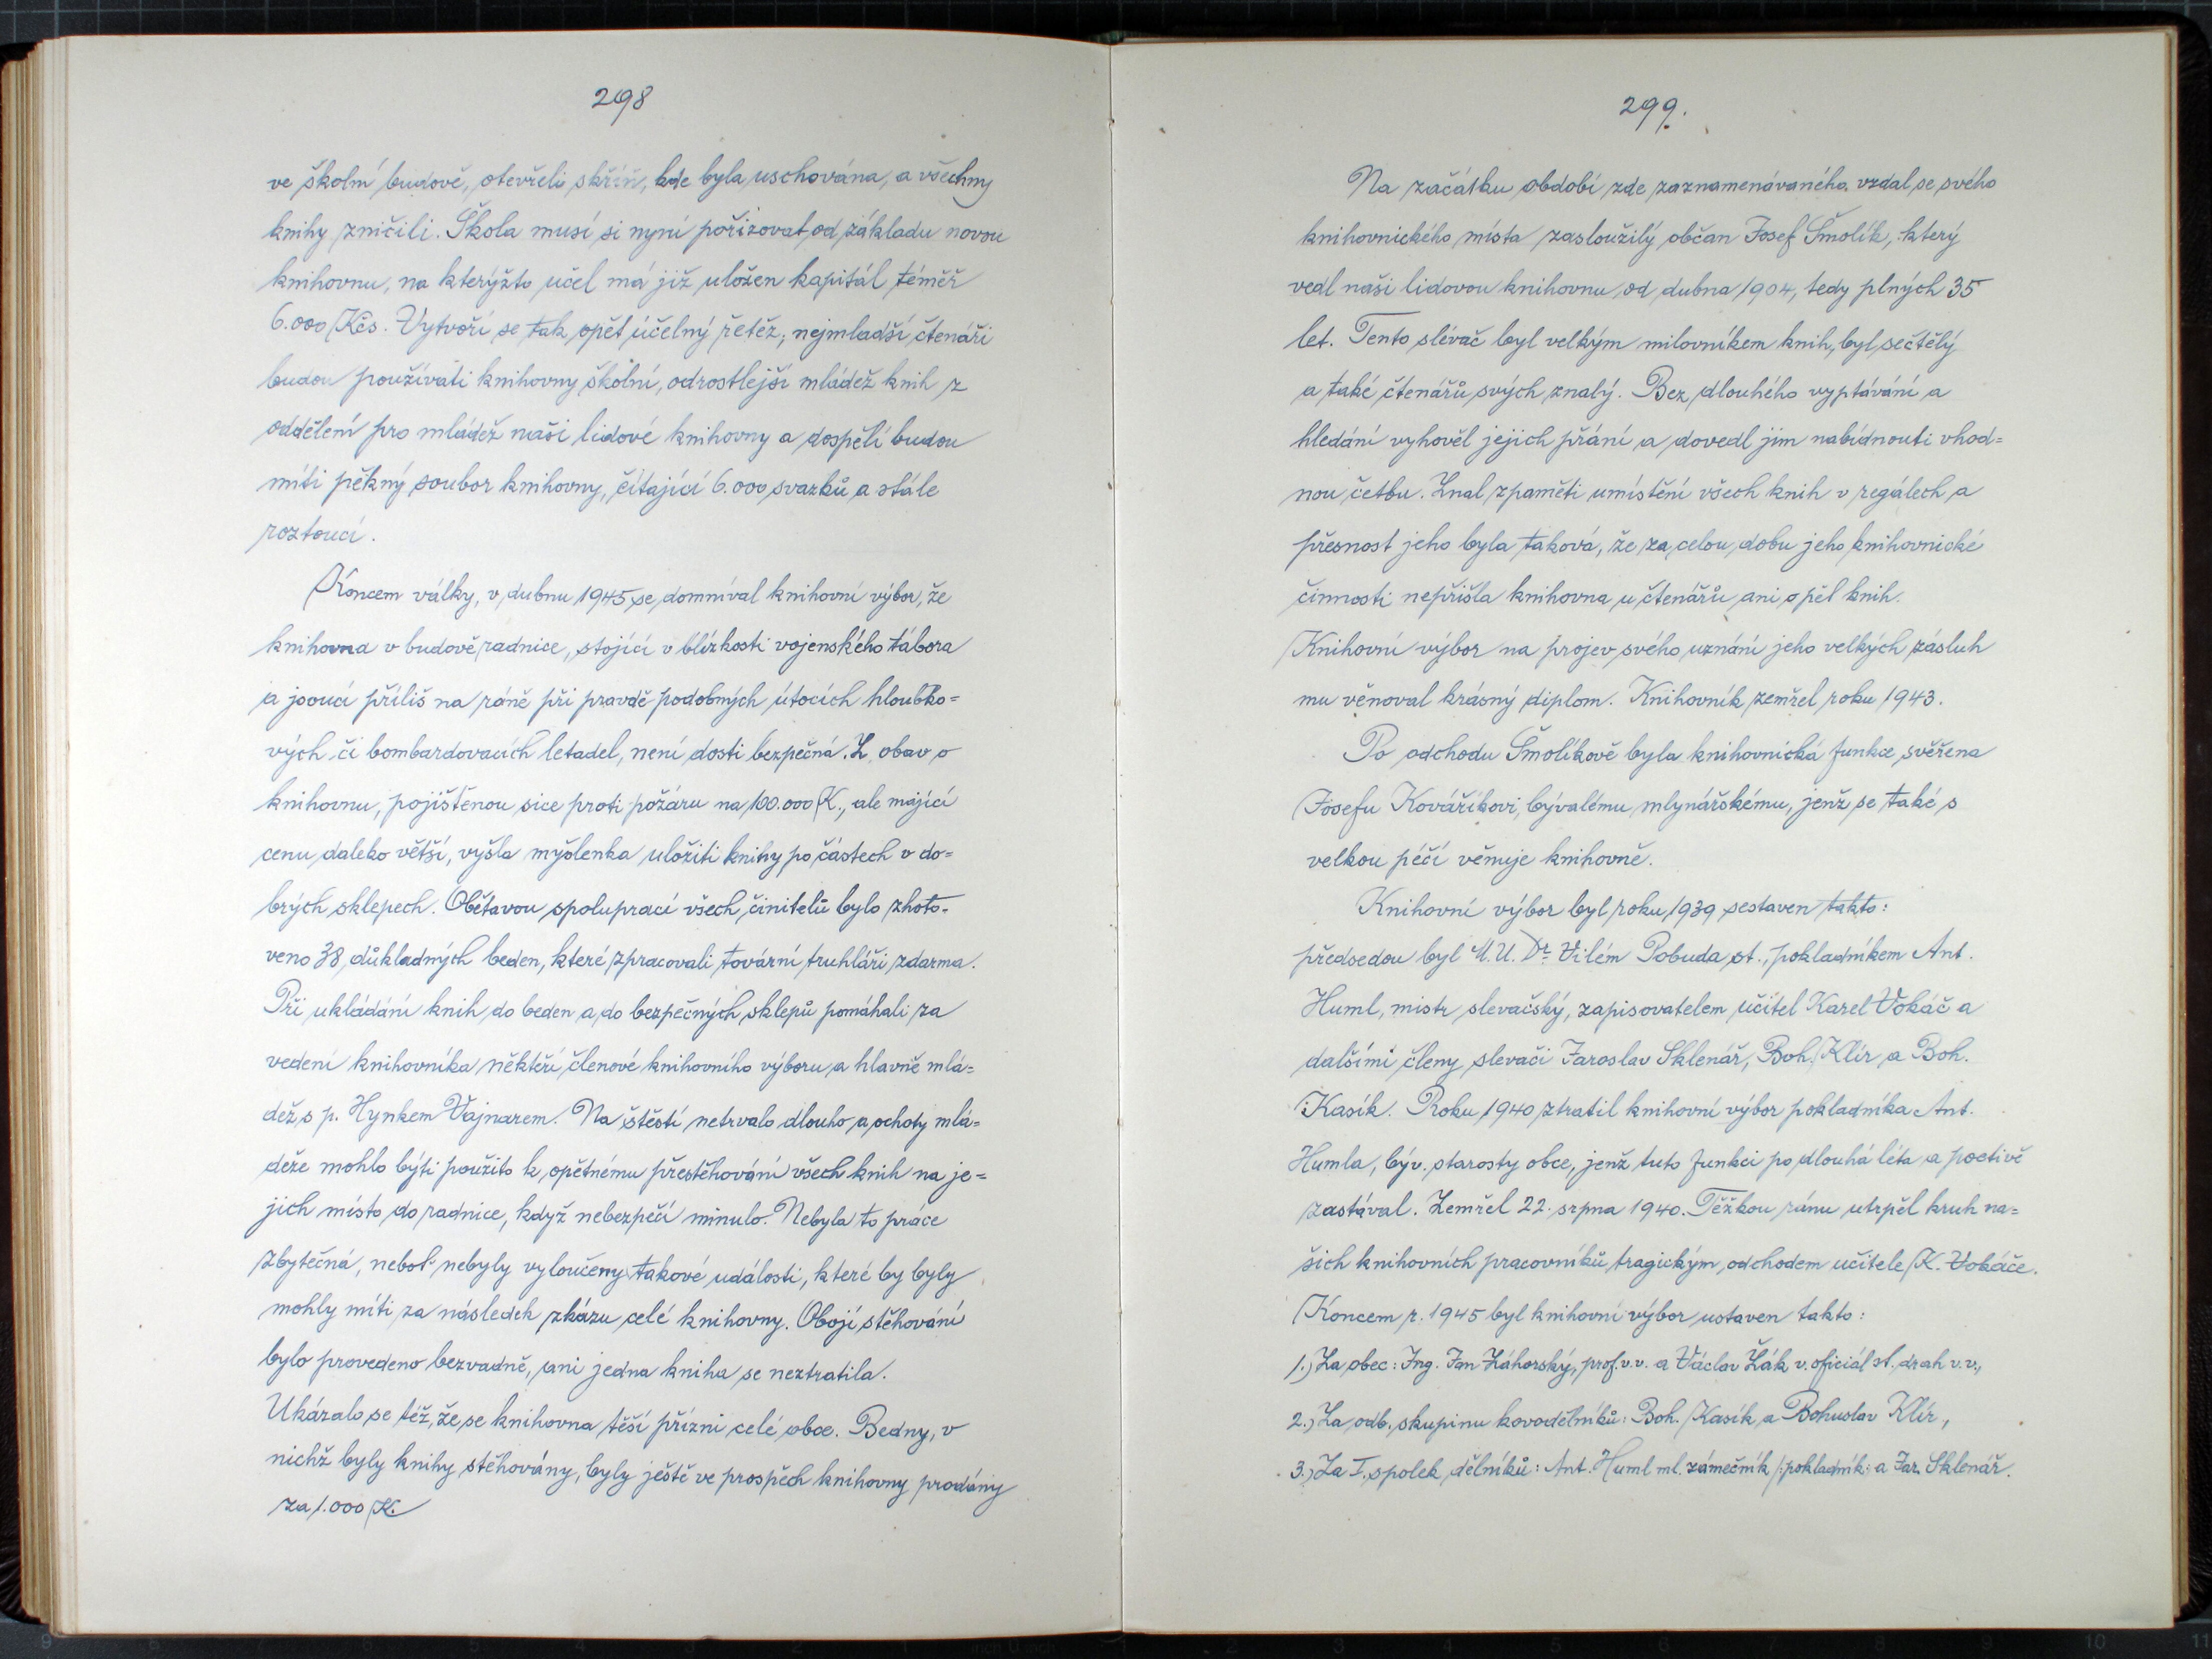 298
ve školní budově, otevřeli skříň, kde byla uschována, a všechny
knihy zničili. Škola musí si nyní pořizovat od základu novou
knihovnu, na kterýžto účel má již uložen kapitál téměř
6.000 Kčs. Vytvoří se tak opět účelný řetěz; nejmladší čtenáři
budou používati knihovny školní, odrostlejší mládež knih z
oddělení pro mládež naší lidové knihovny a dospělí budou
míti pěkný soubor knihovny, čítající 6.000 svazků a stále
roztoucí.
Koncem války, v dubnu 1945 se domníval knihovní výbor, že
knihovna v budově radnice, stojící v blízkosti vojenského tábora
a jsoucí příliš na ráně při pravdě podobných útocích hloubko=
vých či bombardovacích letadel, není dosti bezpečná. Z obav o
knihovnu, pojištěnou sice proti požáru na 100.000 K., ale mající
cenu daleko větší, vyšla myšlenka uložiti knihy po částech v do=
brých sklepech. Obětavou spoluprací všech činitelů bylo zhoto-
veno 38 důkladných beden, které zpracovali tovární truhláři zdarma.
Při ukládání knih do beden a do bezpečných sklepů pomáhali za
vedení knihovníka někteří členové knihovního výboru a hlavně mlá=
dež s p. Hynkem Vajnarem. Na štěstí netrvalo dlouho a ochoty mlá=
deže mohlo býti použito k opětnému přestěhování všech knih na je=
jich místo do radnice, když nebezpečí minulo. Nebyla to práce
zbytečná, neboť nebyly vyloučeny takové události, které by byly
mohly míti za následek zkázu celé knihovny. Obojí stěhování
bylo provedeno bezvadně, ani jedna kniha se neztratila.
Ukázalo se též, že se knihovna těší přízni celé obce. Bedny, v
nichž byly knihy stěhovány, byly ještě ve prospěch knihovny prodány
za 1.000 K.
299.
Na začátku období zde zaznamenávaného vzdal se svého
knihovnického místa zasloužilý občan Josef Šmolík, který
vedl naši lidovou knihovnu od dubna 1904, tedy plných 35
let. Tento slévač byl velkým milovníkem knih, byl sečtělý
a také čtenářů svých znalý. Bez dlouhého vyptávání a
hledání vyhověl jejich přání a dovedl jim nabídnouti vhod=
nou četbu. Znal zpaměti umístění všech knih v regálech a
přesnost jeho byla taková, že za celou dobu jeho knihovnické
činnosti nepřišla knihovna u čtenářů ani o pět knih.
Knihovní výbor na projev svého uznání jeho velkých zásluh
mu věnoval krásný diplom. Knihovník zemřel roku 1943.
Po odchodu Šmolíkově byla knihovnická funkce svěřena
Josefu Kovaříkovi, bývalému mlynářskému, jenž se také s
velkou péčí věnuje knihovně.
Knihovní výbor byl roku 1939 sestaven takto:
předsedou byl M.U. Dr. Vilém Pobuda st., pokladníkem Ant.
Huml, mistr slevačský, zapisovatelem učitel Karel Vokáč a
dalšími členy slevači Jaroslav Sklenář, Boh. Klír a Boh.
Kasík. Roku 1940 ztratil knihovní výbor pokladníka Ant.
Humla, býv. starosty obce, jenž tuto funkci po dlouhá léta a poctivě
zastával. Zemřel 22. srpna 1940. Těžkou ránu utrpěl kruh na=
šich knihovních pracovníků tragickým odchodem učitele K. Vokáče.
Koncem r. 1945 byl knihovní výbor ustaven takto:
1.) Za obec: Ing. Jan Záhorský, prof. v.v. a Václav Žák v. oficiál st. drah v.v.,
2.) Za odb. skupinu kovodělníků: Boh. Kasík a Bohuslav Klír,
3.) Za I. spolek dělníků: Ant. Huml ml. zámečník /:pokladník:/ a Jar. Sklenář.